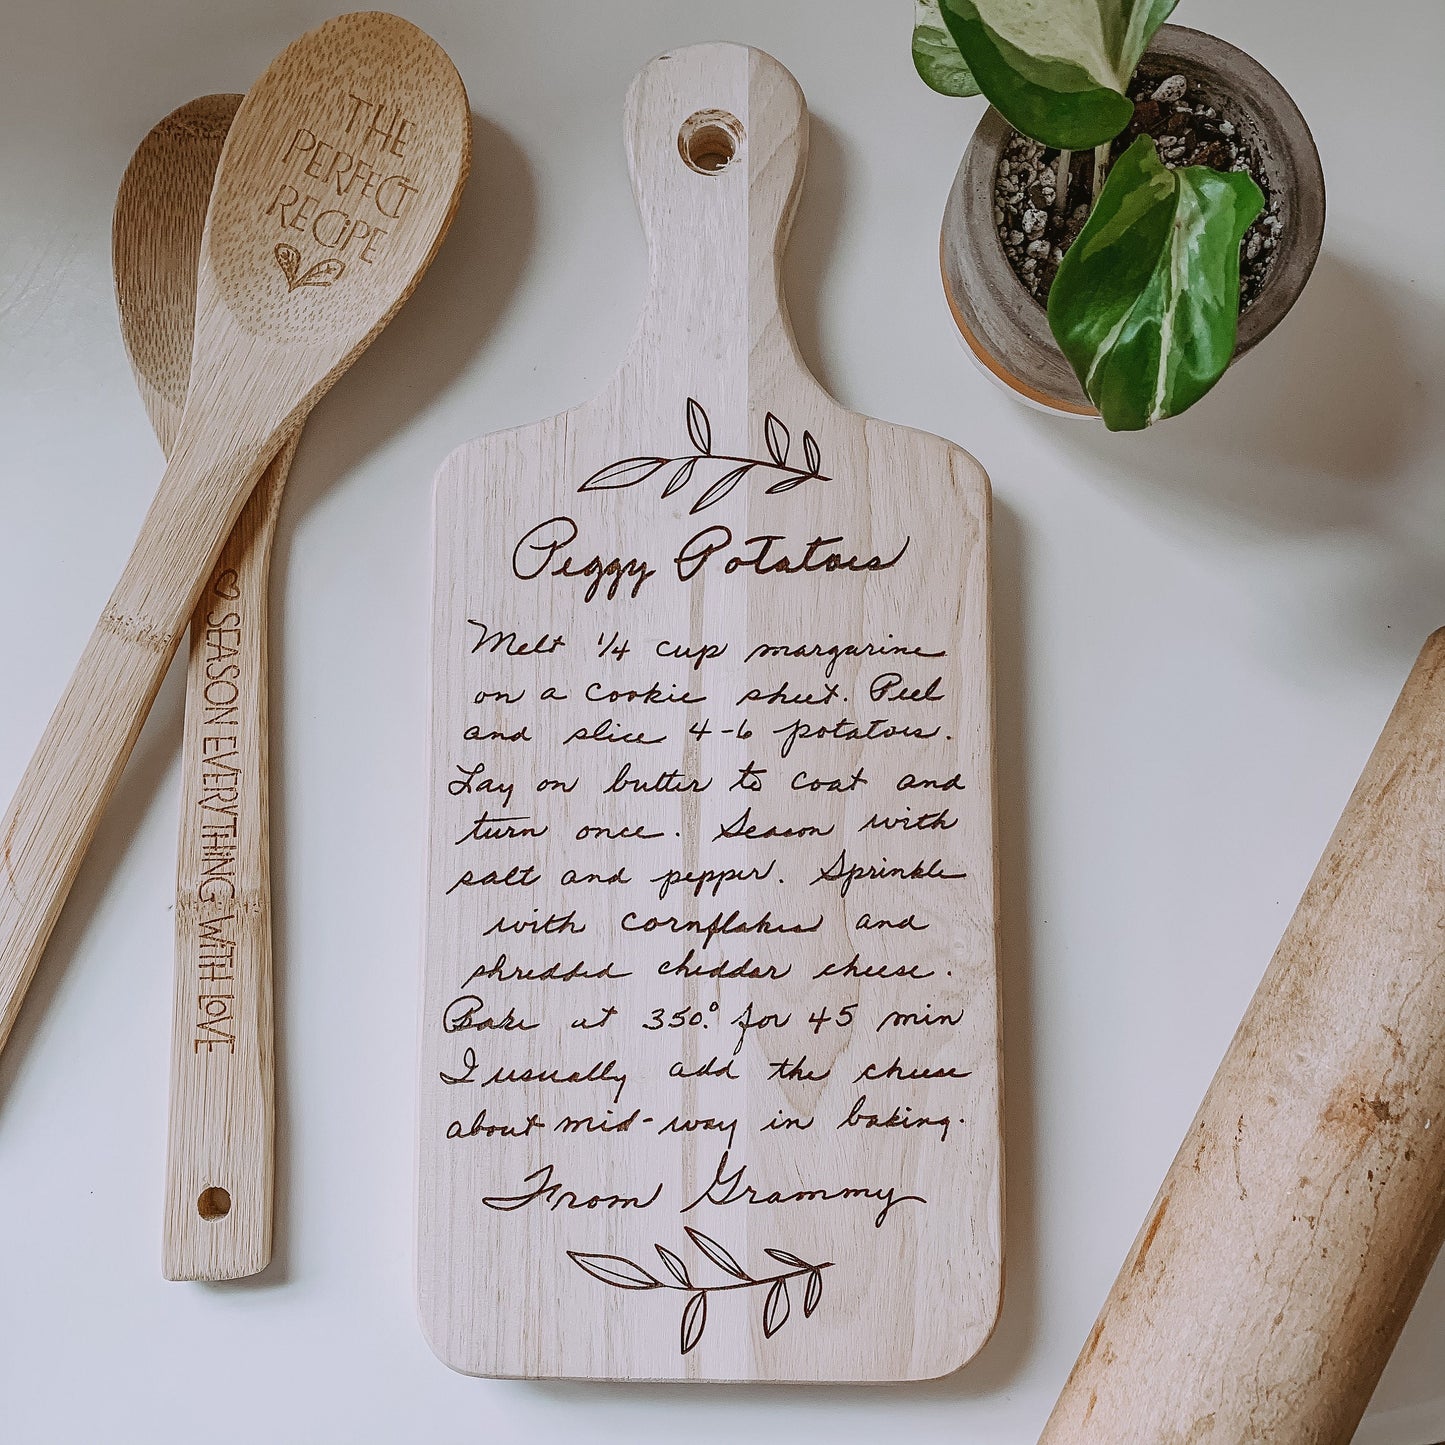 THE
PERFECT
RECIPE
SEASON EVERYTHING WITH LOVE
Peggy Potatoes
Melt 1/4 cup margarine
on a cookie sheet. Peel
and slice 4-6 potatoes.
Lay on butter to coat and
turn once. Season with
salt and pepper. Sprinkle
with cornflakes and
shredded cheddar cheese.
Bake at 350.° for 45 min
I usually add the cheese
about mid-way in baking.
From Grammy